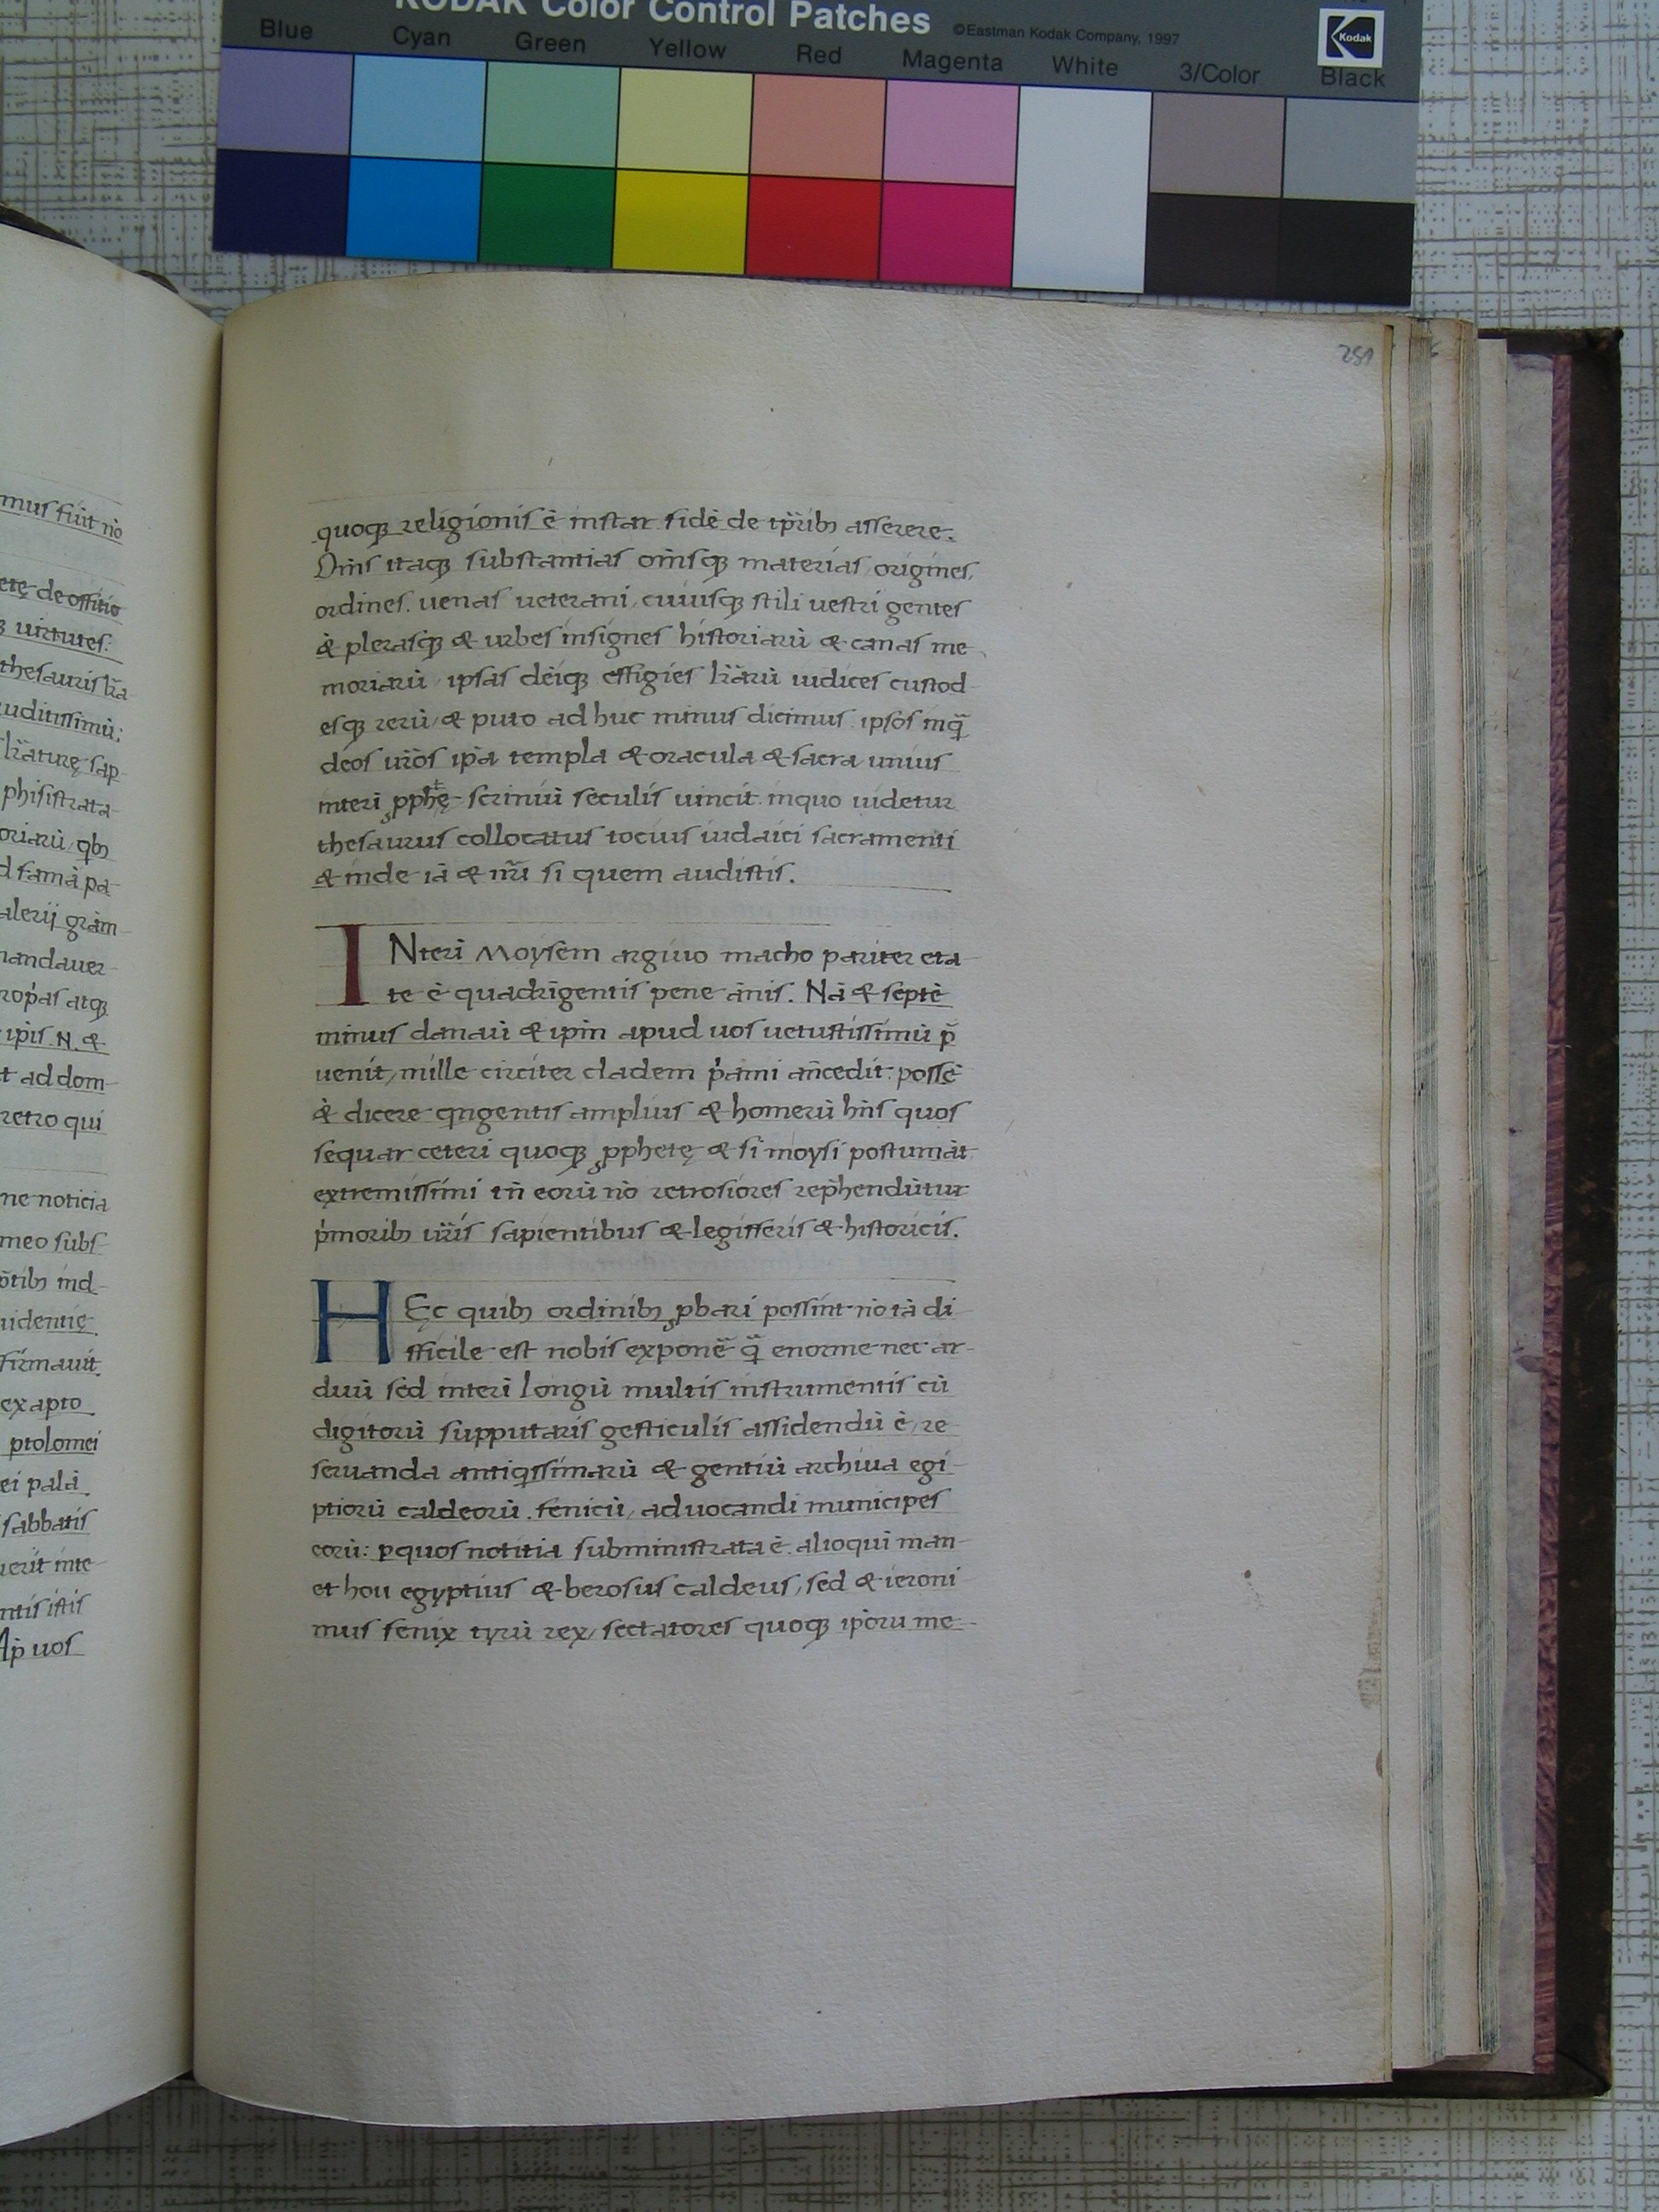 KODAK Color Control Patches ©Eastman Kodak Company, 1997
Kodak
Blue Cyan Green Yellow Red Magenta White 3/Color Black
251
mus fuit nō
etę de offitio
uirtutes:
thesauris
uditissimū:
phisistrata-
oriarū qb᷒
d famā pa-
alerij grām-
mandauer-
atqꝫ
ip̄is. N. &
t ad dom-
retro qui
me noticia
meo subs-
ind-
uidentię.
firmauit.
ex apto
ptolomei
ei palā.
sabbatis
uerit inte-
ntis istis
Ap̄ uos
quoqꝫ religionis ē instar fidē de tp̄rib᷒ asserere.
Om̄s itaqꝫ substantias om̄isqꝫ materias, origines,
ordines. uenas ueterani, cuiusqꝫ stili uestri gentes
& plerasqꝫ & urbes insignes historiarū & canas me-
moriarū, ipsas deīqꝫ effigies lr̄arū iudices custod-
esqꝫ rerū, & puto ad huc minus dicimus. ipsos inq̄
deos ur̄os ip̄a templa & oracula & sacra unius
interī ꝓph̄ę scriniū seculis uincit. inquo uidetur
thesaurus collocatus tocius iudaici sacramenti
& inde iā & nr̄i si quem audistis.
INterī Moysem argiuo macho pariter eta-
te ē quadrigentis pene ānis. Nā & septē
minus danaū & ip̄m apud uos uetustissimū p̄
uenit, mille circiter cladem p̄ami an̄cedit. possē
& dicere qngentis amplius & homerū hn̄s quos
sequar ceteri quoqꝫ ꝓphetę & si moysi postumāt
extremissimi tn̄ eorū nō retrosiores rep̄hendūtur
p̄morib᷒ ur̄is sapientibus & legifferis & historicis.
HEc quib᷒ ordinib᷒ ꝓbari possint nō tā di
fficile est nobis exponē q̄ enorme nec ar-
duū sed interī longū multis instrumentis cū
digitorū supputaris gesticulis assidendū ē, re
seruanda antiqissimarū & gentiū archiua egi-
ptiorū caldeorū. fenicū, aduocandi municipes
eorū: ꝑquos notitia subministrata ē. alioqui man-
et hou egyptius & berosus caldeus, sed & ieroni
mus fenix tyrū rex, sectatores quoqꝫ ip̄oru me-